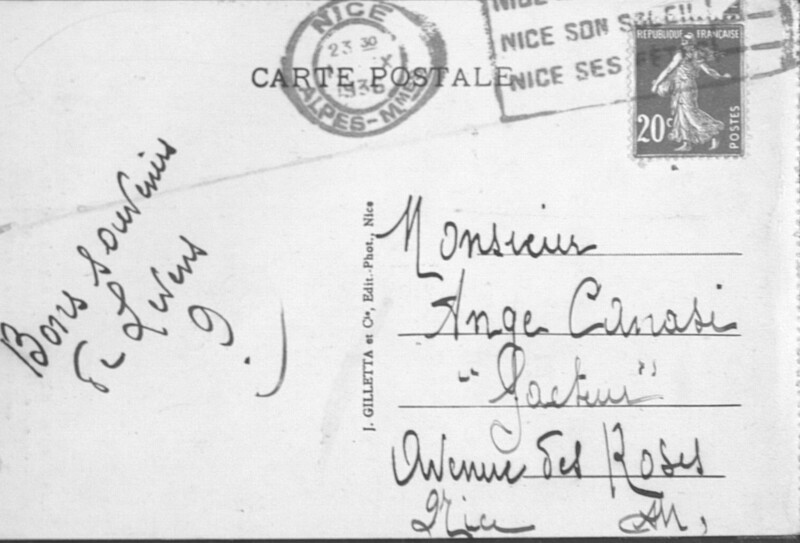 NICE
23 30
X
ALPES-Mmes
NICE SON SOLEIL
NICE SES
REPUBLIQUE FRANÇAISE
20c
POSTES
CARTE POSTALE
Bons Souvenirs
de Levens
J. GILLETTA et Cie, Edit.-Phot., Nice
Monsieur
Ange Canasi
"Facteur"
Avenue des Roses
Nice AM,